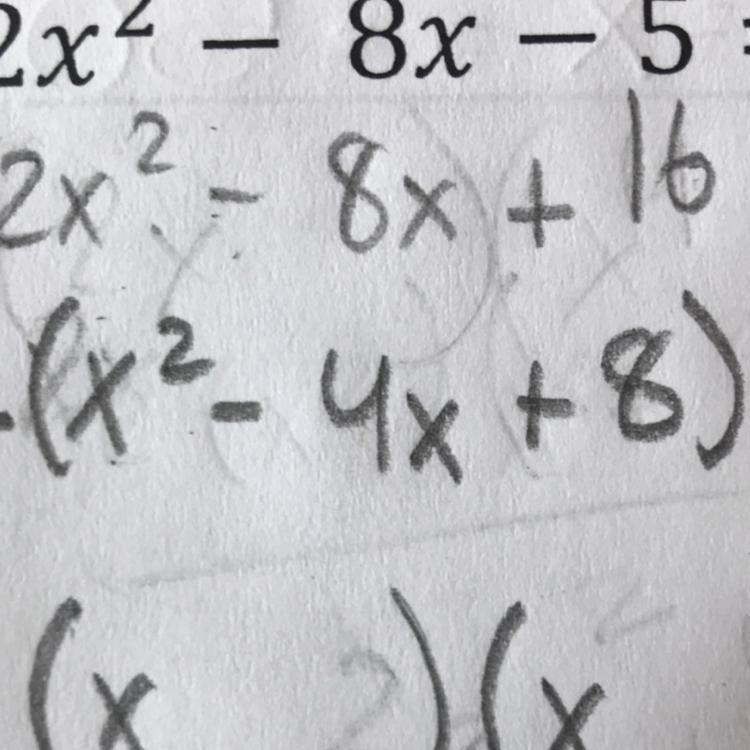 2x² − 8x − 5 =
2x² - 8x + 16
(x² - 4x + 8)
(x    ) (x